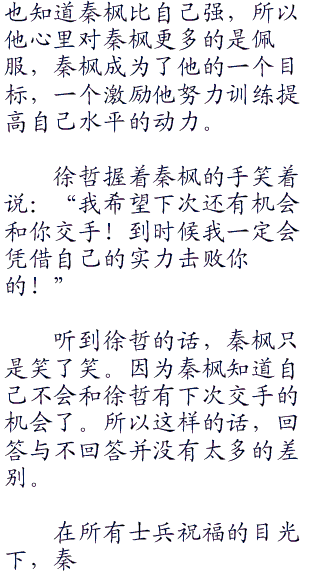 也知道秦枫比自己强，所以
他心里对秦枫更多的是佩
服，秦枫成为了他的一个目
标，一个激励他努力训练提
高自己水平的动力。
徐哲握着秦枫的手笑着
说：“我希望下次还有机会
和你交手！到时候我一定会
凭借自己的实力击败你
的！”
听到徐哲的话，秦枫只
是笑了笑。因为秦枫知道自
己不会和徐哲有下次交手的
机会了。所以这样的话，回
答与不回答并没有太多的差
别。
在所有士兵祝福的目光
下，秦